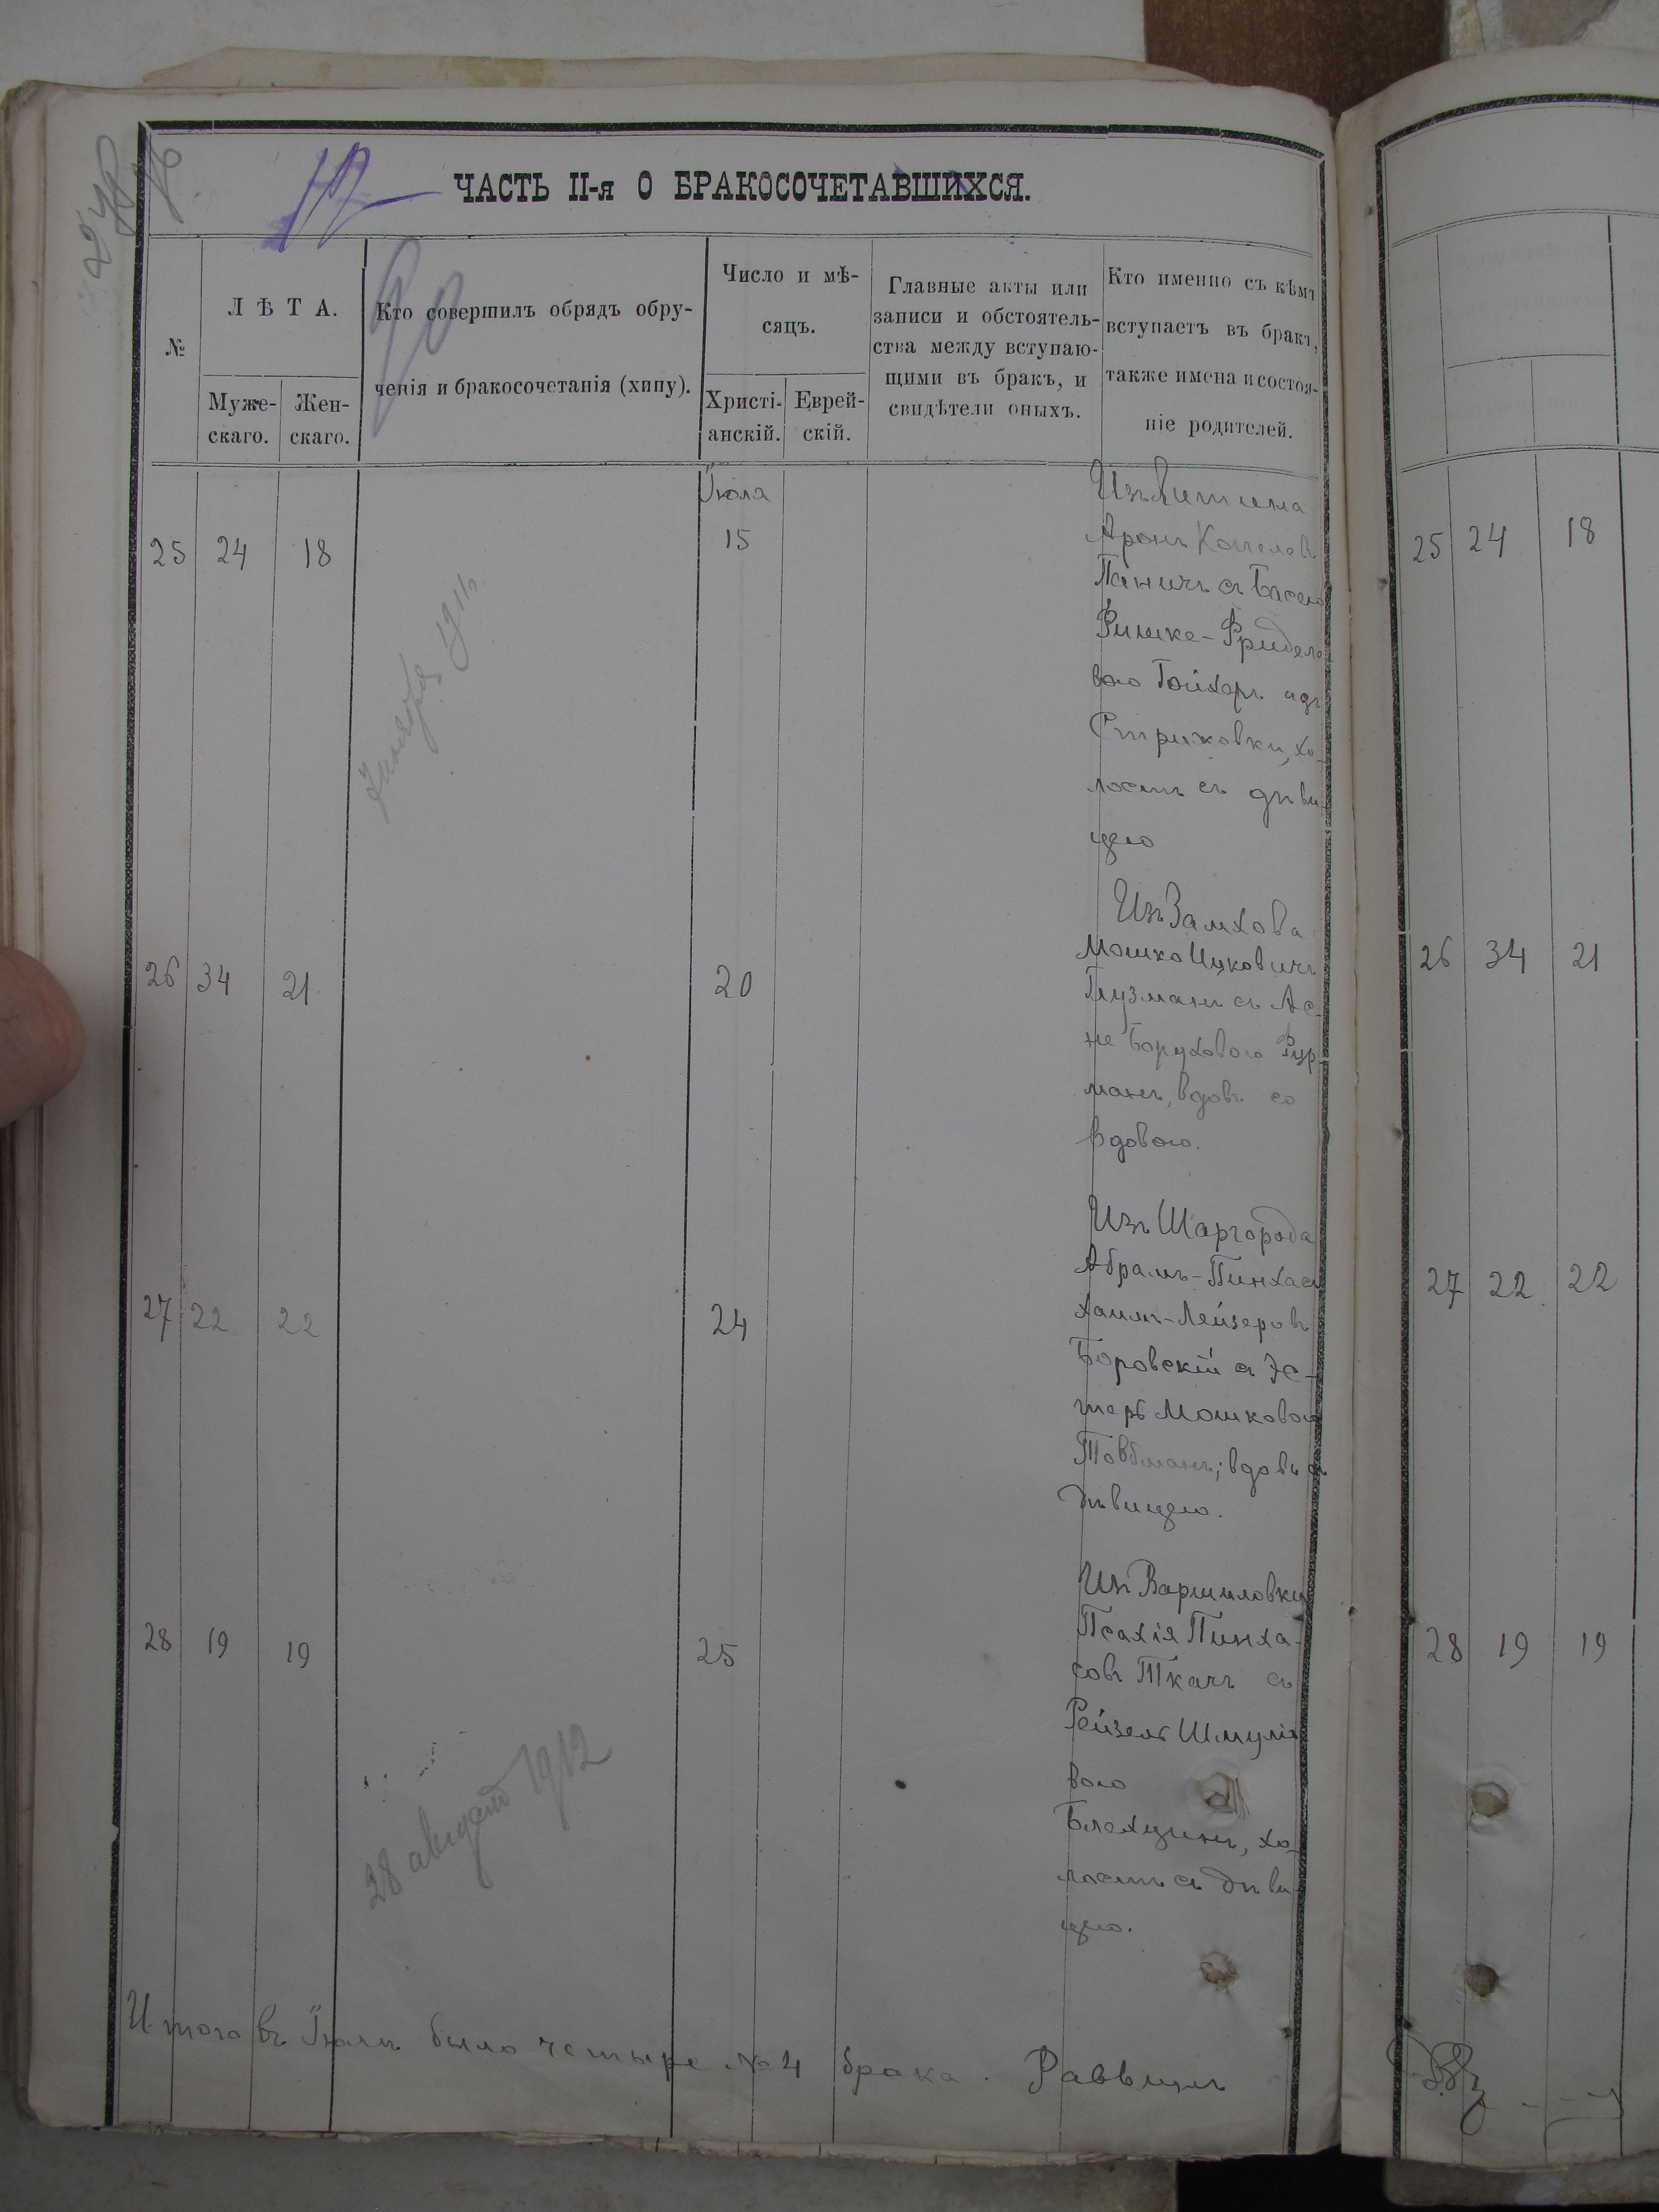 ЧАСТЬ II-я О БРАКОСОЧЕТАВШИХСЯ.
№
ЛѢТА.
Муже-
скаго.
Жен-
скаго.
Кто совершилъ обрядъ обру-
ченія и бракосочетанія (хипу).
Число и мѣ-
сяцъ.
Христі-
анскій.
Еврей-
скій.
Главные акты или
записи и обстоятель-
ства между вступаю-
щими въ бракъ, и
свидѣтели оныхъ.
Кто именно съ кѣмъ
вступаетъ въ бракъ,
также имена и состоя-
ніе родителей.
Іюля
25 24 18 15
Изъ Литина
Аронъ
Паничъ съ Басею
Фридело
вою
Стрижовки, хо-
лостъ съ дѣви-
цею
26 34 21 20
Изъ Замхова
Мошко Ицковичъ
Глузманъ съ Ас-
не Боруховою Фур-
манъ, вдовъ со
вдовою.
27 22 22 24
Изъ Шаргорода
Абрамъ-Пинхасъ
Хаимъ-Лейзеровъ
Боровскій съ Эс-
терѣ Мошковою
Товбманъ; вдовъ съ
дѣвицею.
28 19 19 25
Изъ Ворошиловки
Псахія Пинха-
совъ Ткачъ съ
Рейзелѣ Шмуліо
вою
Блехцинъ, хо-
лостъ съ дѣви-
цею.
28 августа 1912
Итого въ Іюлѣ было четыре №4 брака. Раввинъ
25 24 18
26 34 21
27 22 22
28 19 19